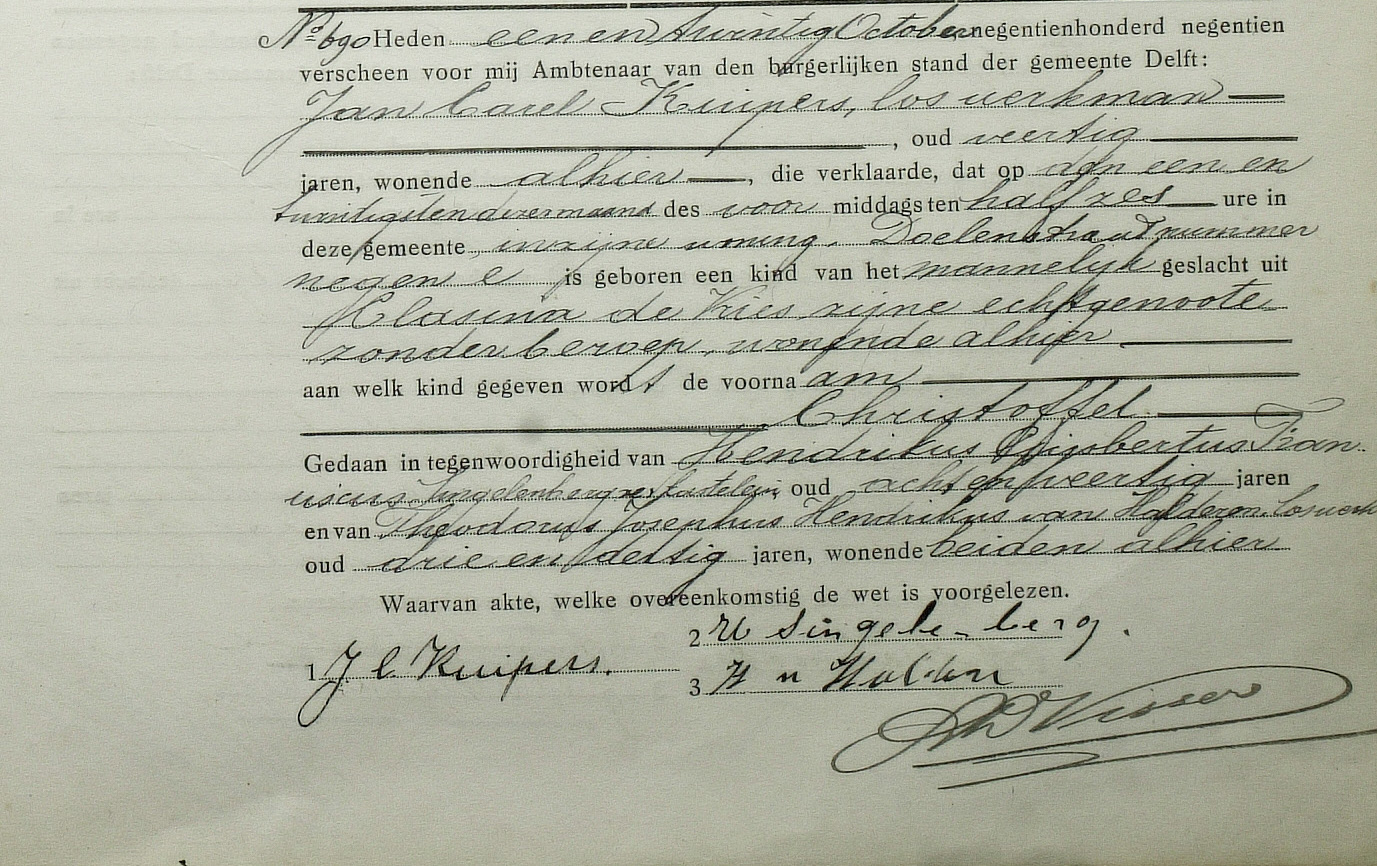 No 690 Heden een en twintig October negentienhonderd negentien
verscheen voor mij Ambtenaar van den burgerlijken stand der gemeente Delft:
Jan Carel Kuipers, los werkman
, oud veertig
jaren, wonende alhier, die verklaarde, dat op den een en
twintigsten dezer maand des voor middags ten half zes ure in
deze gemeente in zijne woning. Doelenstraat nummer
negen e is geboren een kind van het mannelijk geslacht uit
Klasina de Vries zijne echtgenoote
zonder beroep, wonende alhier
aan welk kind gegeven wordt de voornaam
Christoffel
Gedaan in tegenwoordigheid van Hendrikus Gijsbertus Fran-
ciscus Singelenberg, kastelein, oud acht en veertig jaren
en van Theodorus Josephus Hendrikus van Halderen, loswerk
oud drie en dertig jaren, wonende beiden alhier
Waarvan akte, welke overeenkomstig de wet is voorgelezen.
2 H Singelenberg.
1 J C Kuipers.
3 H v Halderen
Visser